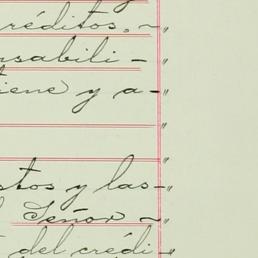 réditos.~"
nsabili-"
iene y a-"
"
"
stos y las-"
Señor ~"
del crédi-"